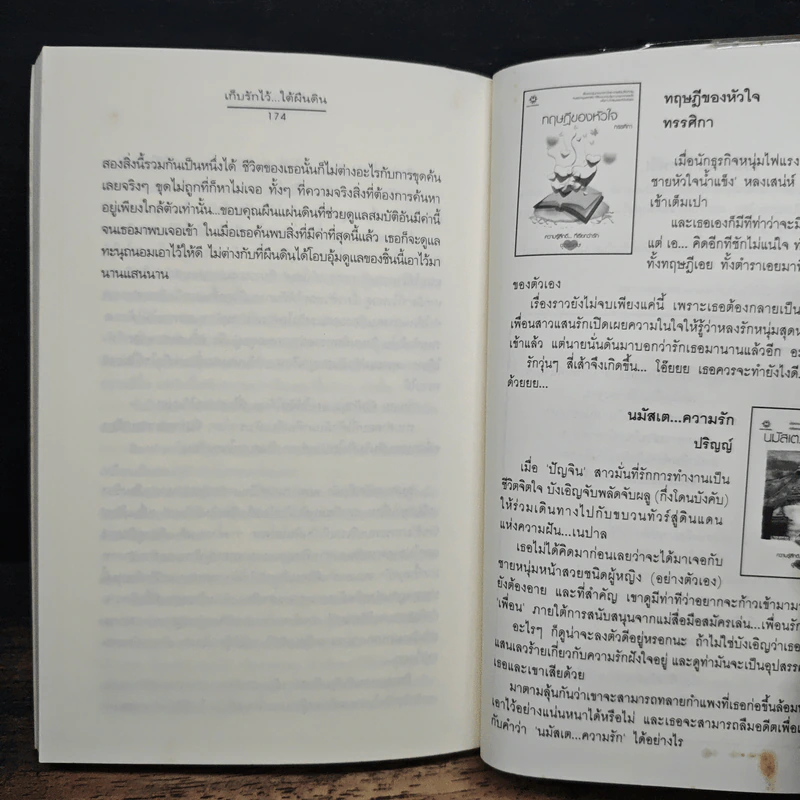 เก็บรักไว้...ใต้ผืนดิน
174
สองสิ่งนี้รวมกันเป็นหนึ่งได้ ชีวิตของเธอนั้นก็ไม่ต่างอะไรกับการขุดค้น
เลยจริงๆ ขุดไม่ถูกที่ก็หาไม่เจอ ทั้งๆ ที่ความจริงสิ่งที่ต้องการค้นหา
อยู่เพียงใกล้ตัวเท่านั้น...ขอบคุณผืนแผ่นดินที่ช่วยดูแลสมบัติอันมีค่านี้
จนเธอมาพบเจอเข้า ในเมื่อเธอค้นพบสิ่งที่มีค่าที่สุดนี้แล้ว เธอก็จะดูแล
ทะนุถนอมเอาไว้ให้ดี ไม่ต่างกับที่ผืนดินได้โอบอุ้มดูแลของชิ้นนี้เอาไว้มา
นานแสนนาน
ทฤษฎีของหัวใจ
ทรรศิกา
ทฤษฎีของหัวใจ
ทรรศิกา
เมื่อนักธุรกิจหนุ่มไฟแรง
ชายหัวใจน้ำแข็ง' หลงเสน่ห์
เข้าเต็มเปา
และเธอเองก็มีทีท่าว่าจะมี
แต่ เอ... คิดอีกทีชักไม่แน่ใจ
ทั้งทฤษฎีเอย ทั้งตำราเอยมา
ของตัวเอง
เรื่องราวยังไม่จบเพียงแค่นี้ เพราะเธอต้องกลายเป็น
เพื่อนสาวแสนรักเปิดเผยความในใจให้รู้ว่าหลงรักหนุ่มสุด
เข้าแล้ว แต่นายนั่นดันมาบอกว่ารักเธอมานานแล้วอีก
รักวุ่นๆ สี่เส้าจึงเกิดขึ้น... โอ๊ยยย เธอควรจะทำยังไงดี...
ด้วยยย...
นมัสเต...ความรัก
ปริญญ์
นมัสเต
เมื่อ 'ปัญจิน' สาวมั่นที่รักการทำงานเป็น
ชีวิตจิตใจ บังเอิญจับพลัดจับผลู (กึ่งโดนบังคับ)
ให้ร่วมเดินทางไปกับขบวนทัวร์สู่ดินแดน
แห่งความฝัน...เนปาล
เธอไม่ได้คิดมาก่อนเลยว่าจะได้มาเจอกับ
ชายหนุ่มหน้าสวยชนิดผู้หญิง (อย่างตัวเอง)
ยังต้องอาย และที่สำคัญ เขาดูมีท่าทีว่าอยากจะก้าวเข้ามา
'เพื่อน' ภายใต้การสนับสนุนจากแม่สื่อมือสมัครเล่น...เพื่อนรัก
อะไรๆ ก็ดูน่าจะลงตัวดีอยู่หรอกนะ ถ้าไม่ใช่บังเอิญว่าเธอ
แสนเลวร้ายเกี่ยวกับความรักฝังใจอยู่ และดูท่ามันจะเป็นอุปสรรค
เธอและเขาเสียด้วย
มาตามลุ้นกันว่าเขาจะสามารถทลายกำแพงที่เธอก่อขึ้นล้อม
เอาไว้อย่างแน่นหนาได้หรือไม่ และเธอจะสามารถลืมอดีตเพื่อ
กับคำว่า 'นมัสเต...ความรัก' ได้อย่างไร